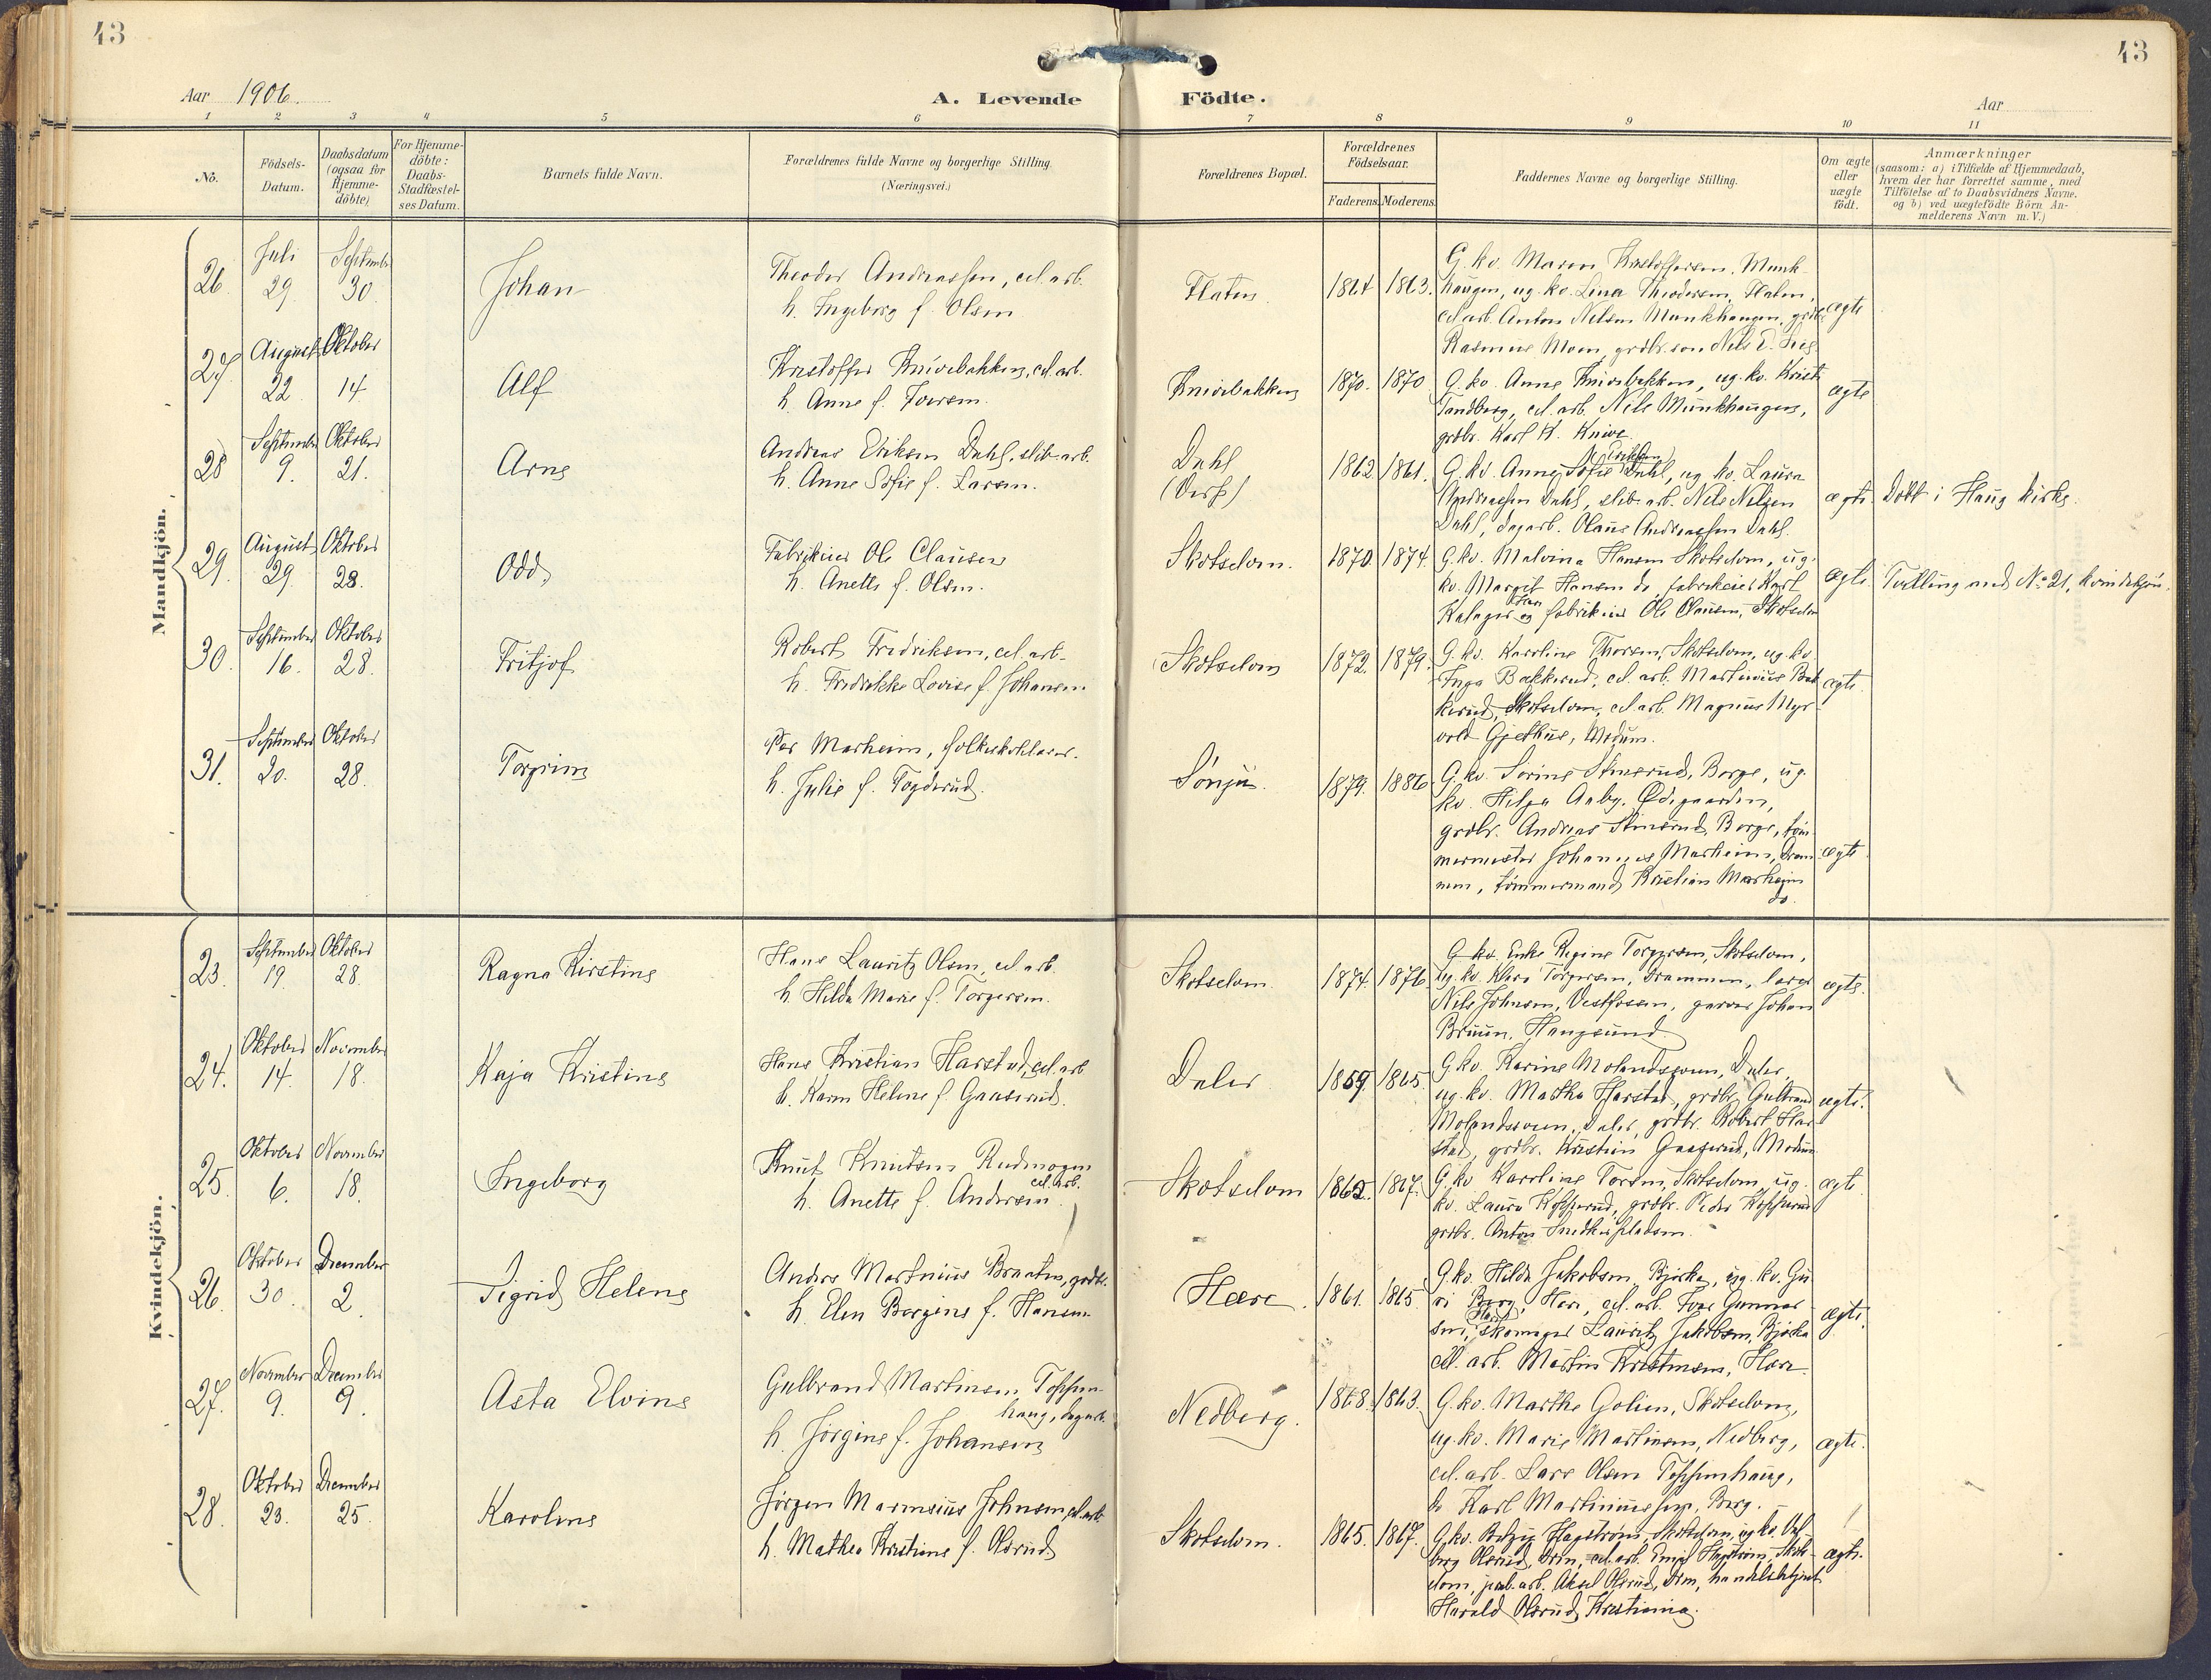 43
43
Aar 1906.
A. Levende Födte.
Aar
1 2 3 4 5 6 7 8 9 10 11
No.
Födsels-Datum.
Daabsdatum (ogsaa for Hjemme-döbte)
For Hjemme-döbte: Daabs-Stadfæstel-ses Datum.
Barnets fulde Navn.
Forældrenes fulde Navne og borgerlige Stilling. (Næringsvei.)
Forældrenes Bopæl.
Forældrenes Födselsaar.
Faderens. Moderens.
Faddernes Navne og borgerlige Stilling.
Om ægte eller uægte födt.
Anmærkninger
(saasom: a) i Tilfælde af Hjemmedaab,
hvem der har forrettet samme, med
Tilföielse af to Daabsvidners Navne.
og b) ved uægtefödte Börn An-
melderens Navn m.V.)
Mandkjön.
26. Juli 29. September 30. Johan
Theodor Andreassen, cel. arb.
h. Ingeborg f. Olsen
Flaten. 1864 1863.
G. kv. Maren Kristoffersen, Munk-
haugen, ug. kv. Lina Theodorsen, Flaten,
cel. arb. Anton Nilsen Munkhaugen, grdbr.
Rasmus Moen, grdbr. søn Nils
ægte
27. August 22 Oktober 14 Alf
Kristoffer Knivebakken, cel. arb.
h. Anne f. Iversen.
Knivebakken 1870. 1870
G. kv. Anne Knivebakken, ug. kv. Kristi
Tandberg, cel. arb. Nils Munkhaugen,
grdbr. Karl K. Knive.
ægte
28 September 9. Oktober 21. Arne
Andreas Eriksen Dahl, slib. arb.
h. Anne Sofie f. Larsen.
Dahl
1862. 1861.
G. kv. Anne Sofie Dahl, ug. kv. Laura
Andreassen Dahl, slib. arb. Nils Nilsen
Dahl, dagarb. Olaus Andreassen Dahl.
ægte. Døbt i Haug kirke.
29. August 29. Oktober 28. Odd
Fabrikeier Ole Clausen
h. Anette f. Olsen.
Skotselven. 1870. 1874.
G. kv. Malvina Hansen Skotselven, ug.
kv. Margit Hansen do, fabrikeier Karl
og fabrikeier Ole Clausen, Skotselven
ægte. Tvilling med No 21, kvindekjøn.
30. September 16. Oktober 28. Fritjof
Robert Fredriksen, cel. arb.
h. Fredrikke Lovise f. Johansen
Skotselven 1872. 1879.
G. kv. Karoline Thorsen, Skotselven, ug. kv.
Inga Bakkerud, cel. arb. Martinius Bak-
kerud, Skotselven, cel. arb. Magnus Myr-
vold Gjethus, Modum.
ægte.
31. September 20. Oktober 28. Torgrim
Per Marheim, folkeskolelærer.
h. Julie f. Togderud.
Sønju. 1879. 1886
G. kv. Sorine Stenerud, Borge, ug.
kv. Helga Aaby, Ødegaarden,
grdbr. Andreas Stenerud, Borge, tøm-
mermester Johannes Marheim, Dram-
men, tømmermand Kristian Marheim
do.
ægte
Kvindekjön.
23. September 19. Oktober 28. Ragna Kirstine
Hans Lauritz Olsen, cel. arb.
h. Hilda Marie f. Torgersen.
Skotselven. 1874. 1876.
G. kv. Enke Regine Torgersen, Skotselven,
ug. kv. Klara Torgersen, Drammen, lærer
Nils Johnsen, Vestfossen, garver Johan
Bruun, Haugsund.
ægte.
24. Oktober 14. November 18. Kaja Kristine
Hans Kristian Harstad, cel. arb
h. Karen Helene f. Gaaserud.
Daler. 1859. 1865.
G. kv. Karine Molandsveen, Daler,
ug. kv. Martha Harstad, grdbr. Gulbrand
Molandsveen, Daler, grdbr. Robert Har-
stad, grdbr. Kristian Gaaserud, Modum.
ægte.
25. Oktober 6. November 18. Ingeborg
Knut Knutsen Rudmogen
cel. arb.
h. Anette f. Andersen.
Skotselven 1862. 1867.
G. kv. Karoline Torsen, Skotselven, ug.
kv. Laura Kopperud, grdbr. Peder Kopperud
grdbr. Anton
ægte
26. Oktober 30. December 2. Sigrid Helene
Anders Martinius Braaten, grdbr.
h. Elen Bergine f. Hansen.
Hære. 1861. 1865.
G. kv. Hilda Jakobsen, Bjørka, ug. kv. Gu-
ri Berg, Hære, cel. arb. Iver Gunnar-
sen, skomager Lauritz Jakobsen, Bjørka
cel. arb. Martin Kristensen, Hære.
ægte.
27. November 9. December 9. Asta Elvine
Gulbrand Martinsen Toppen-
haug, dagarb.
h. Jørgine f. Johansen
Nedberg. 1868. 1863.
G. kv. Marthe Golien, Skotselven,
ug. kv. Marie Martinsen, Nedberg,
cel. arb. Lars Olsen Toppenhaug,
do Karl Martiniussen, Berg.
ægte.
28. Oktober 23. December 25. Karoline
Jørgen Marensius Johnsen, cel. arb.
h. Mathea Kristiane f. Olsrud
Skotselven. 1865. 1867.
G. kv. Hagstrøm, Skotselven, ug. kv. Val-
borg Olsrud, Drm, cel. arb. Emil Hagstrøm, Skots-
elven, arb. Aksel Olsrud, Drm, handelsbetjent
Harald Olsrud, Kristiania.
ægte.